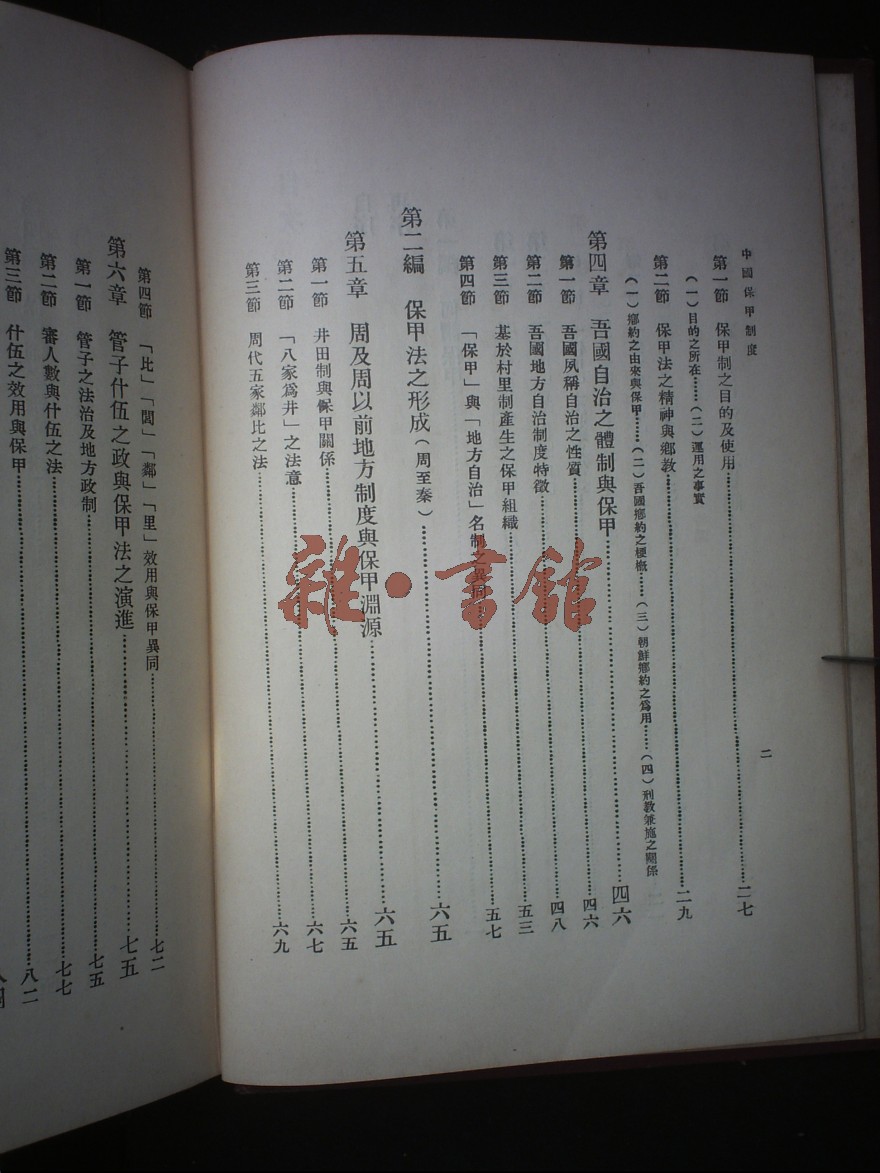 中國保甲制度
二
第一節 保甲制之目的及使用……二七
(一)目的之所在……(二)運用之事實
第二節 保甲法之精神與鄉教……二九
(一)鄉約之由來與保甲……(二)吾國鄉約之梗概……(三)朝鮮鄉約之爲用……(四)刑教兼施之關係
第四章 吾國自治之體制與保甲……四六
第一節 吾國夙稱自治之性質……四六
第二節 吾國地方自治制度特徵……四八
第三節 基於村里制產生之保甲組織……五三
第四節 「保甲」與「地方自治」名制之異同……五七
第二編 保甲法之形成(周至秦)……六五
第五章 周及周以前地方制度與保甲淵源……六五
第一節 井田制與保甲關係……六五
第二節 「八家爲井」之法意……六七
第三節 周代五家鄰比之法……六九
第四節 「比」「閭」「鄰」「里」效用與保甲異同……七二
第六章 管子什伍之政與保甲法之演進……七五
第一節 管子之法治及地方政制……七五
第二節 審人數與什伍之法……七七
第三節 什伍之效用與保甲……八二
雜·書館